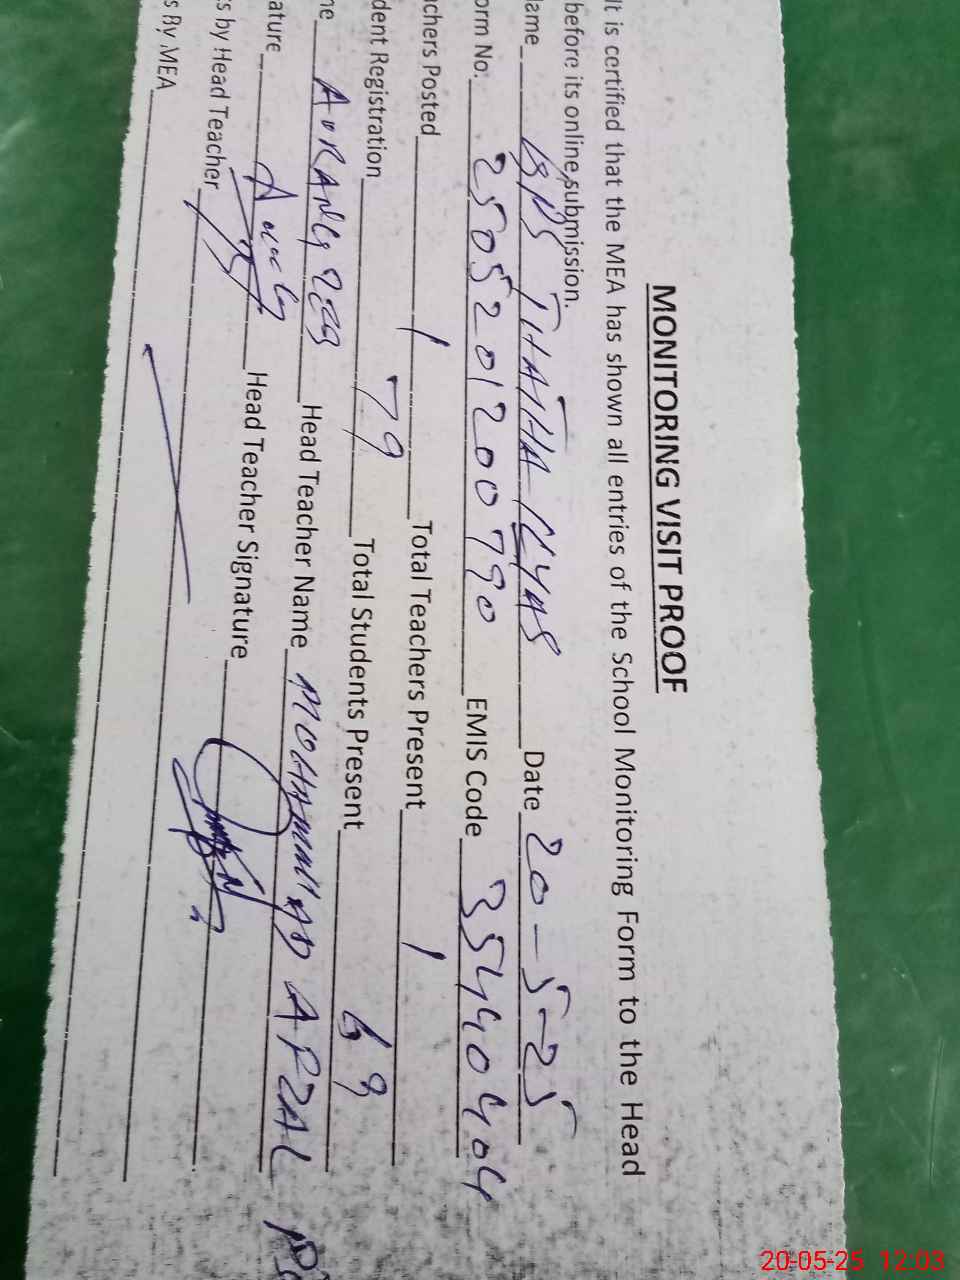 MONITORING VISIT PROOF
It is certified that the MEA has shown all entries of the School Monitoring Form to the Head
before its online submission.
ame Date 20-5-25
orm No. 2505201200790 EMIS Code 35440404
achers Posted 1 Total Teachers Present 1
dent Registration 79 Total Students Present 69
me AURANGZEB Head Teacher Name MOHAMMAD AFZAL
ature Head Teacher Signature
s by Head Teacher
s By MEA
20-05-25 12:03